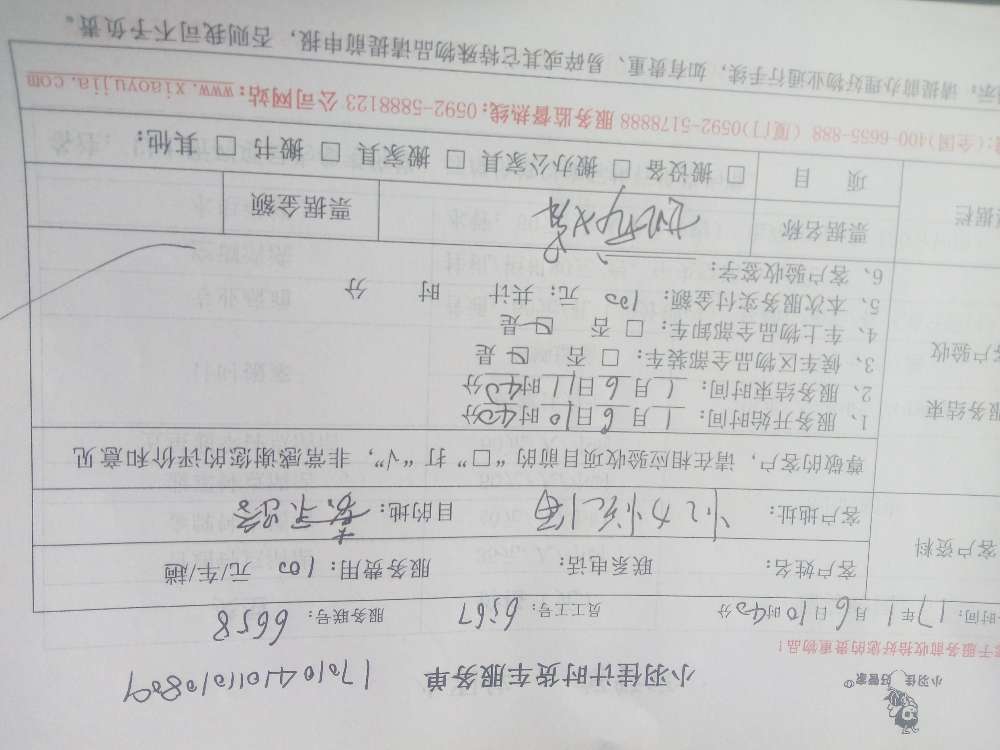 小羽佳 好管家
小羽佳计时货车服务单
于服务前收拾好您的贵重物品!
时间: 17年1月6日10时40分 员工工号: 6567 服务联号: 6658
客户资料
客户姓名: 联系电话: 服务费用: 100 元/车/趟
客户地址: 目的地:
尊敬的客户,请在相应验收项目前的“□”打“√”,非常感谢您的评价和意见
服务结束
客户验收
1、服务开始时间: 1月6日10时40分
2、服务结束时间: 1月6日11时40分
3、候车区物品全部装车: □ 否 ☑ 是
4、车上物品全部卸车: □ 否 ☑ 是
5、本次服务实付金额: 100 元; 共计 时 分
6、客户验收签字:
据栏
票据名称 票据金额
项 目 □ 搬设备 □ 搬办公家具 □ 搬家具 □ 搬书 □ 其他:
:(全国)400-6655-888 (厦门)0592-5178888 服务监督热线:0592-5888123 公司网站:www.xiaoyujia.com
示: 请提前办理好物业通行手续, 如有贵重、易碎或其它特殊物品请提前申报, 否则我司不予负责。